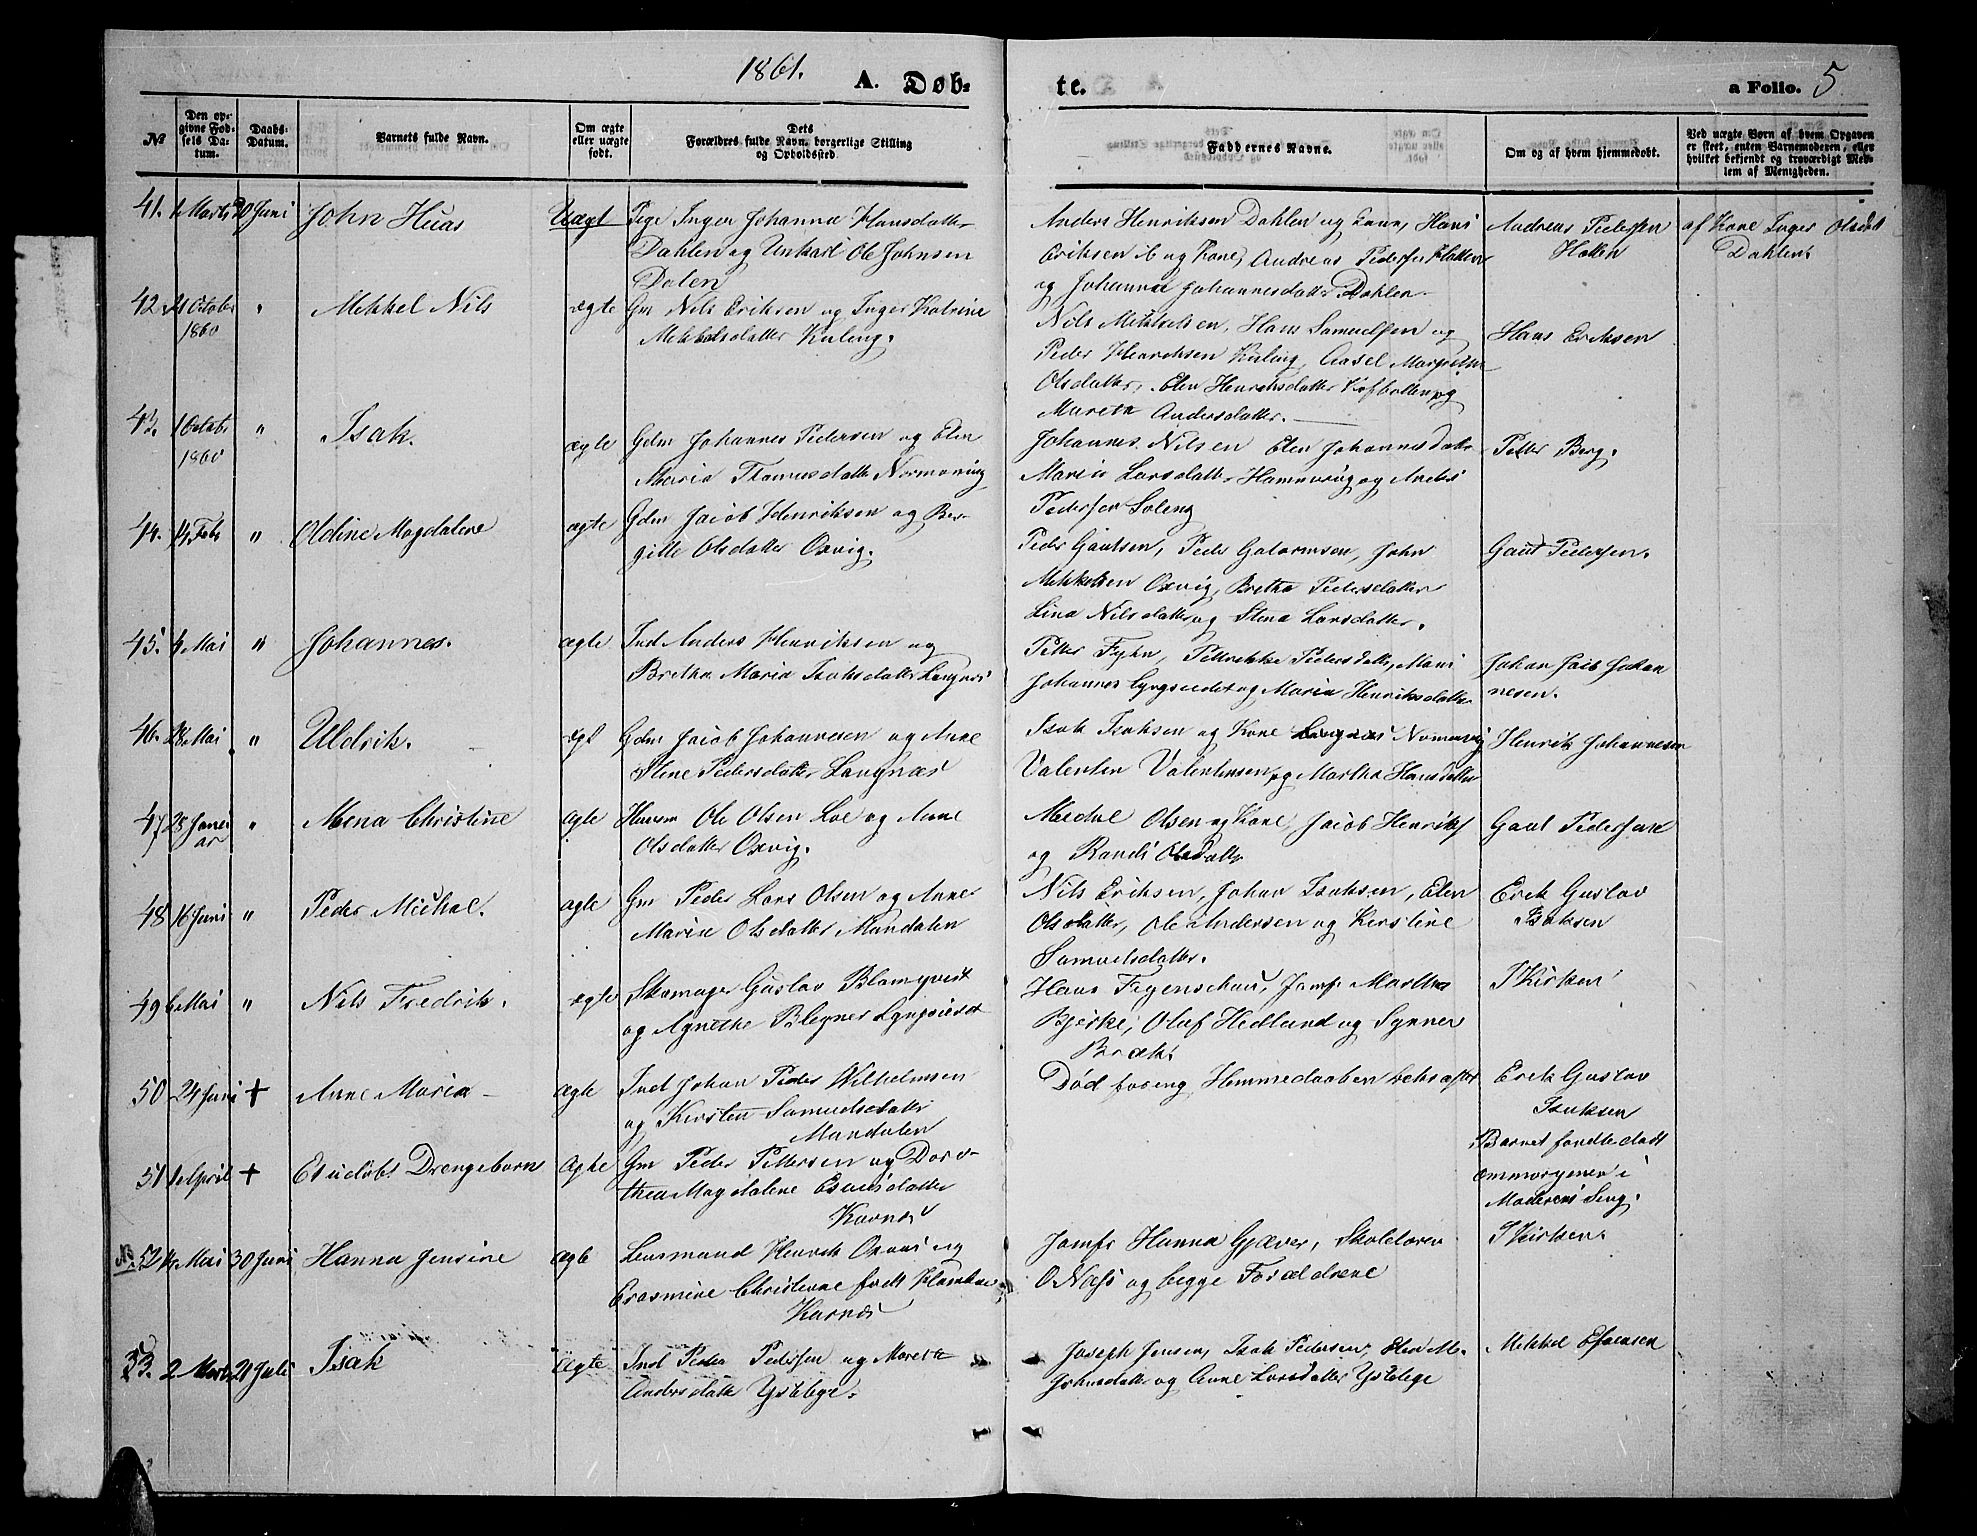 1861. A. Døb- te. a Folio. 5
№
Den op-
givne Fød-
sels Da-
tum.
Daabs-
Datum.
Barnets fulde Navn.
Om ægte
eller uægte
født.
Dets
Forældres fulde Navn, borgerlige Stilling
og Opholdssted.
Faddernes Navne.
Om og af hvem hjemmedøbt.
Ved uægte Børn af hvem Opgaven
er skeet, enten Barnemoderen, eller
hvilket bekjendt og troværdigt Med-
lem af Menigheden.
41. 1 Marts 20 Juni John Huas Uægt Pige Inger Johanna Hansdatter
Dahlen og Unkarl Ole Johnsen
Dalen
Anders Henriksen Dahlen og Kone, Hans
Eriksen ib og Kone, Andreas Pedersen Hatten
og Johanna Johannesdatter Dahlen
Andreas Pedersen
Hatten
af Kone Inger Olsdtt
Dahlen
42. 21 October
1860 " Mekkel Nils ægte Gm Nils Eriksen og Inger Katrine
Mekkelsdatter Kuleng.
Nils Mekkelsen, Hans Samuelsen og
Peder Henriksen Kuleng, Aasel Margrethe
Olsdatter, Elen Henriksdatter Kofbotten og
Mareth Andersdatter.
Hans Eriksen
43. 1 Octobr
1860 " Isak. ægte Gdm Johannes Pedersen og Elen
Maria Thomasdatter Normanvig
Johannes Nilsen Elen Johannesdatter
Maria Larsdatter Hamnvug og Anders
Pedersen Soleng
Petter Berg.
44. 14 Febr " Oldine Magdalene ægte Gdm Jacob Henriksen og Ber-
gitte Olsdatter Oxvig.
Peder Gautsen, Peder Gutormsen, John
Mekkelsen Oxvig, Bretha Pedersdatter
Lina Nilsdatter og Stena Larsdatter.
Gaut Pedersen.
45. 4 Mai " Johannes. ægte Ind Anders Henriksen og
Bretha Maria Isaksdatter Langnæs
Petter Fyhn, Petrekke Pedersdatter, Mons
Johannes Lyngseidet og Maria Henriksdatter
Johan Jacob Johan
nesen.
46. 28 Mai " Uldrik. ægt Gdm Jacob Johannesen og Anne
Stene Pedersdatter Langnæs
Isak Isaksen og Kone Langnæs Normanvig
Valentin Valentinsen og Martha Hansdatter
Henrik Johannesen
47 28 Janu
ar " Mena Christine ægte Huusm Ole Olsen Loe og Anne
Olsdatter Oxvig.
Olsen og Kone, Jacob Henriks
og Randi Olsdatter
Gaut Pedersen
48 16 Juni " Peder Michal. ægte Gm Peder Lars Olsen og Anne
Maria Olsdatter Mandalen
Nils Eriksen, Johan Isaksen, Elen
Olsdatter, Ole Andersen og Kerstine
Samuelsdatter.
Erik Gustav
Isaksen
49 6 Mai " Nils Fredrik. ægte Skomager Gustav Blomqvist
og Agnethe Blegner Lyngseidet
Hans Figenschau, Jomf. Martha
Bjerke, Oluf Hedlund og Synner
Bræk.
I Kirken
50 24 Juni + Anne Maria ægte Ind Johan Peder Wilhelmsen
og Kirsten Samuelsdatter
Mandalen
Død foreng Hjemmedaaben bekræftet
Erik Gustav
Isaksen
51 1 April + Et udøbt Drengebarn ægte Gm Peder Pettersen og Doro-
thea Magdalene Esaisdatter
Kavnæs
Barnet fandtes dødt
om morgenen i
Moderens Seng.
№ 52 14 Mai 30 Juni Hanna Jensine ægte Lensmand Henrik Oxaas og
Erasmine Christianne født
Karnæs
Jomfr Hanna Gjæver, Skolelærer
O Næss og begge Forældrene
I Kirken.
53. 2 Marts 21 Juli Isak ægte Ind Peder Pedersen og Mareth
Andersdatter Ysteleye.
Joseph Jensen, Isak Pedersen, Elen M.
Johnsdatter og Anne Larsdatter Ysteleye
Mekkel Esaiasen